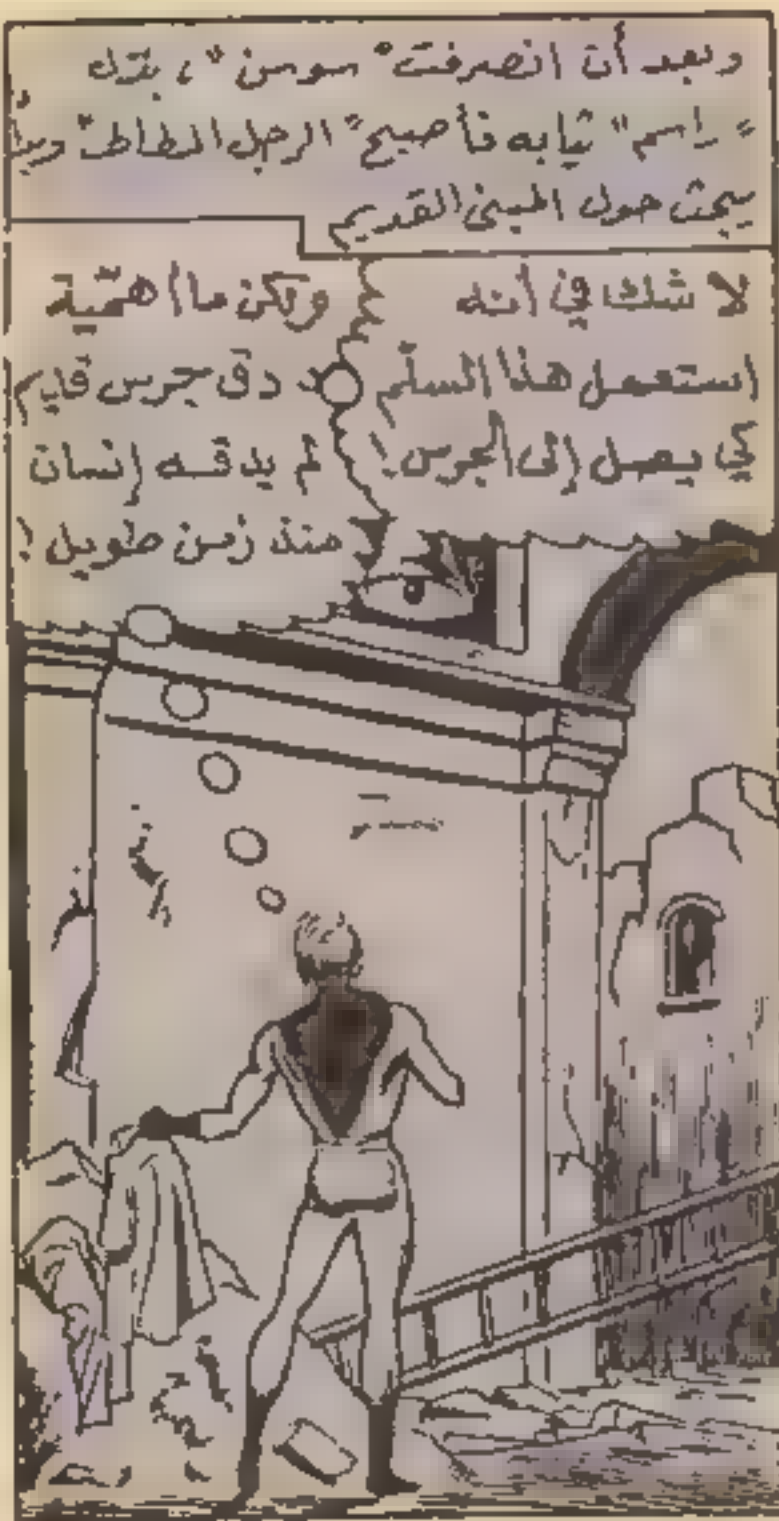 وبعد أن انصرفت "سوسن"، بدّل
"راسم" ثيابه فأصبح "الرجل المطاط" وبدأ
يبحث حول المبنى القديم
لا شك في أنه
استعمل هذا السلّم
كي يصل إلى الجرس!
ولكن ما أهمّية
دق جرس قديم
لم يدقه إنسان
منذ زمن طويل!